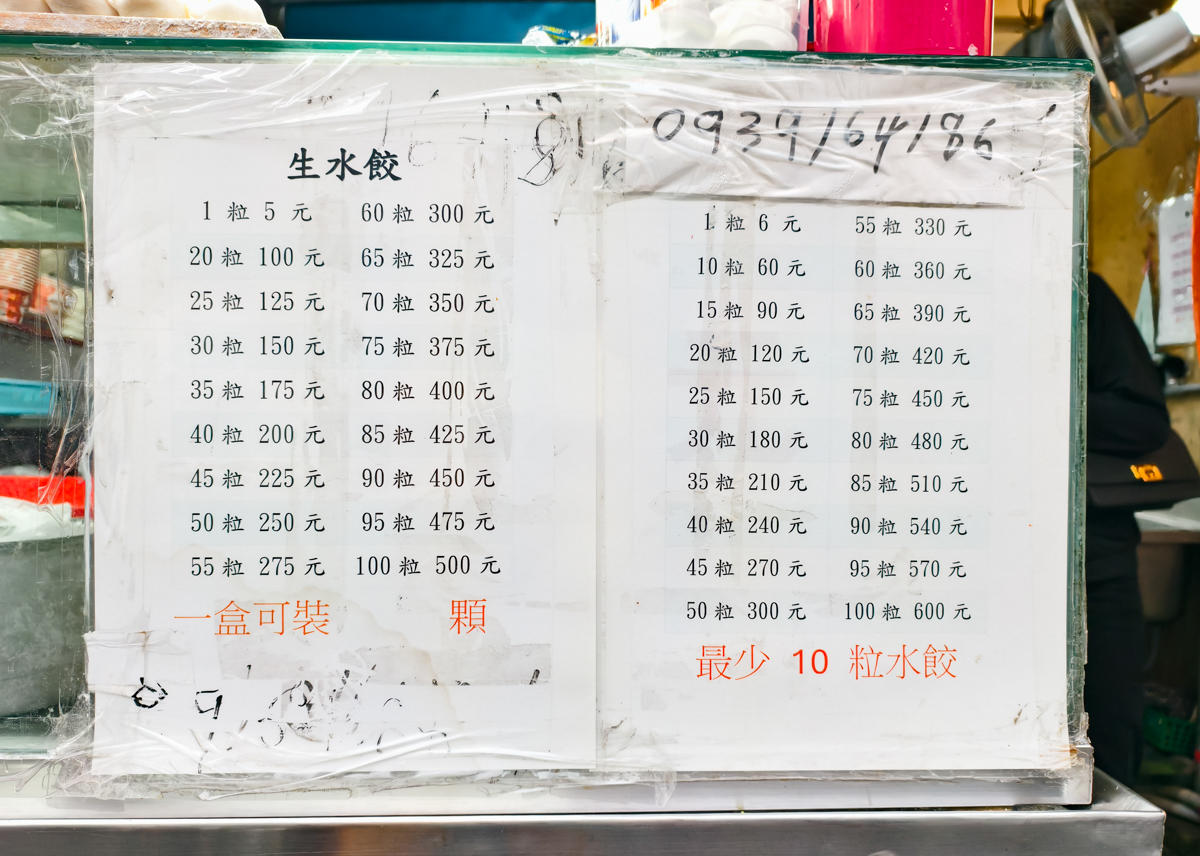 生水餃
1 粒 5 元 60 粒 300 元
20 粒 100 元 65 粒 325 元
25 粒 125 元 70 粒 350 元
30 粒 150 元 75 粒 375 元
35 粒 175 元 80 粒 400 元
40 粒 200 元 85 粒 425 元
45 粒 225 元 90 粒 450 元
50 粒 250 元 95 粒 475 元
55 粒 275 元 100 粒 500 元
一盒可裝 顆
0939/64/86
1 粒 6 元 55 粒 330 元
10 粒 60 元 60 粒 360 元
15 粒 90 元 65 粒 390 元
20 粒 120 元 70 粒 420 元
25 粒 150 元 75 粒 450 元
30 粒 180 元 80 粒 480 元
35 粒 210 元 85 粒 510 元
40 粒 240 元 90 粒 540 元
45 粒 270 元 95 粒 570 元
50 粒 300 元 100 粒 600 元
最少 10 粒水餃